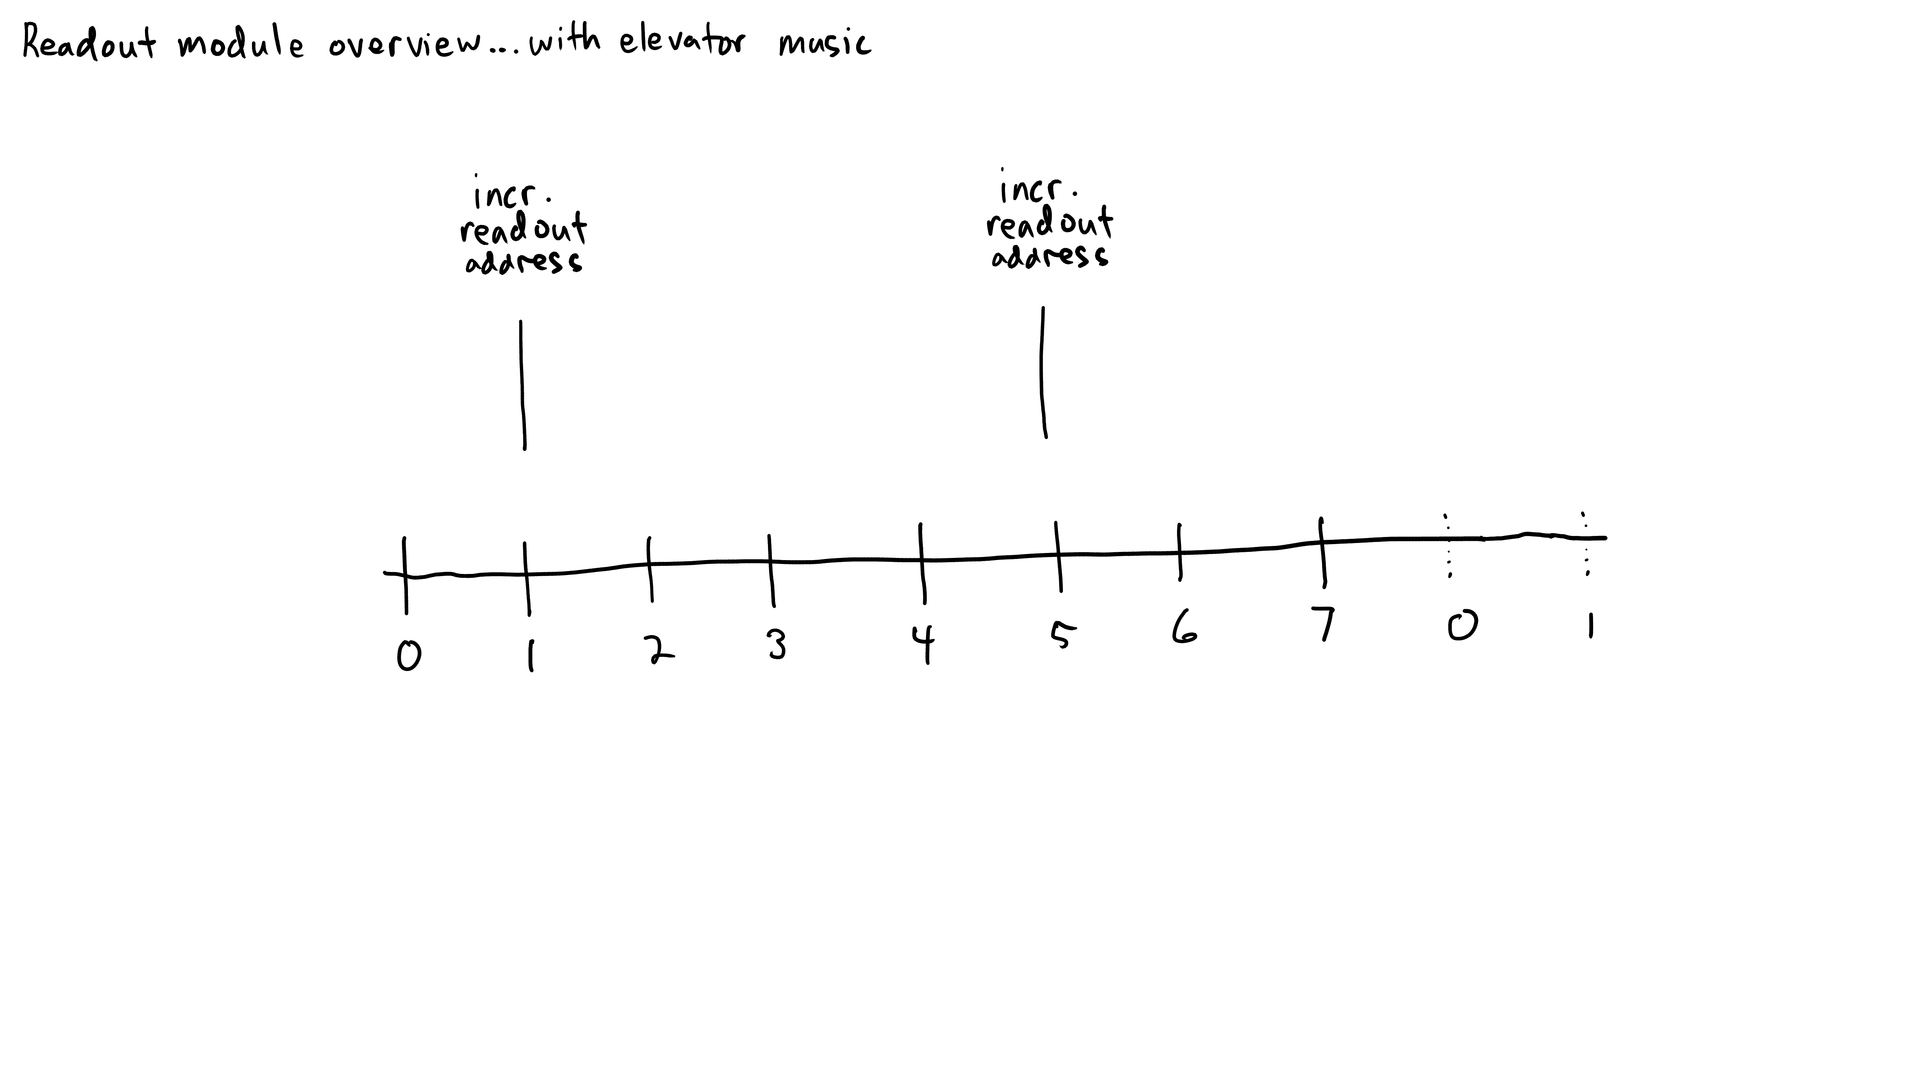 Readout module overview...with elevator music
incr.
readout
address
incr.
readout
address
0 1 2 3 4 5 6 7 0 1